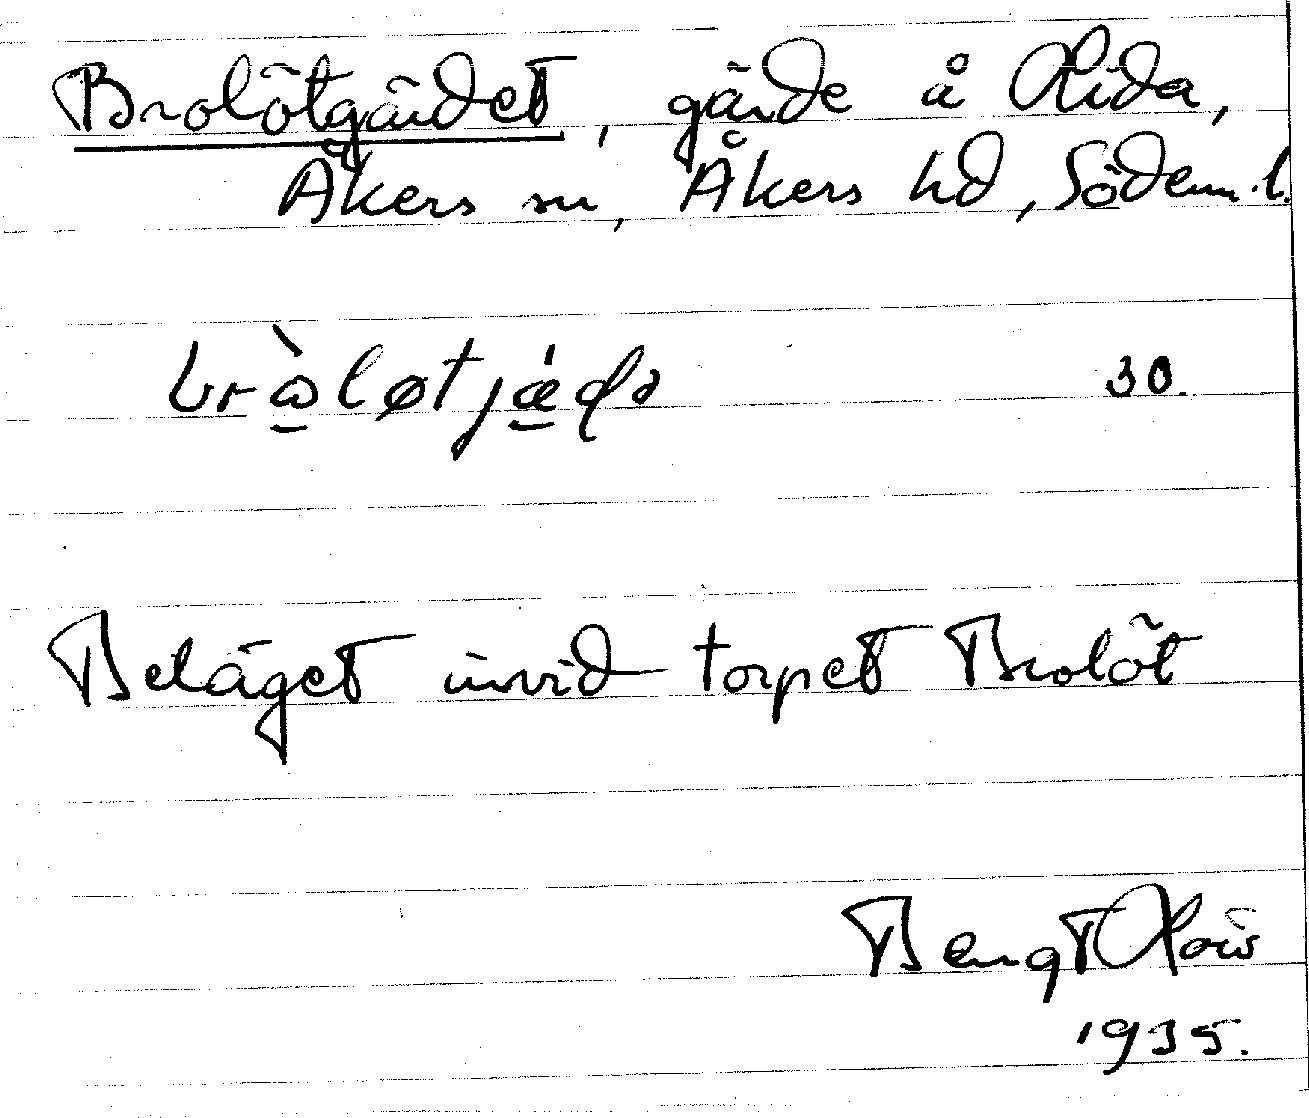 Brolötgärdet, gärde å Lida,
Åkers sn, Åkers hd, Söderm. l.
brὼ̲løtjǽ̲ɖə 30.
Beläget invid torpet Brolöt
Bengt
1935.